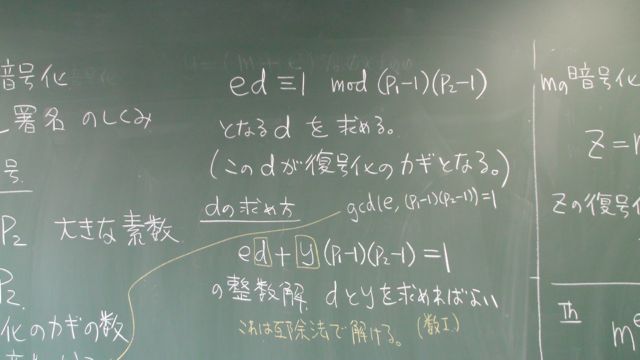 暗号化
署名 のしくみ
号
P₂ 大きな素数
P₂
化のカギの数
ed ≡ 1 mod (P₁-1)(P₂-1)
となる d を 求める。
(この d が復号化のカギとなる。)
dの求め方
gcd(e, (P₁-1)(P₂-1))=1
ed + y (P₁-1)(P₂-1) = 1
の整数解 dとyを求めればよい
これは互除法で解ける。 (数I.)
ma 暗号化
Z =
Zの復号化
Th
mᵉ